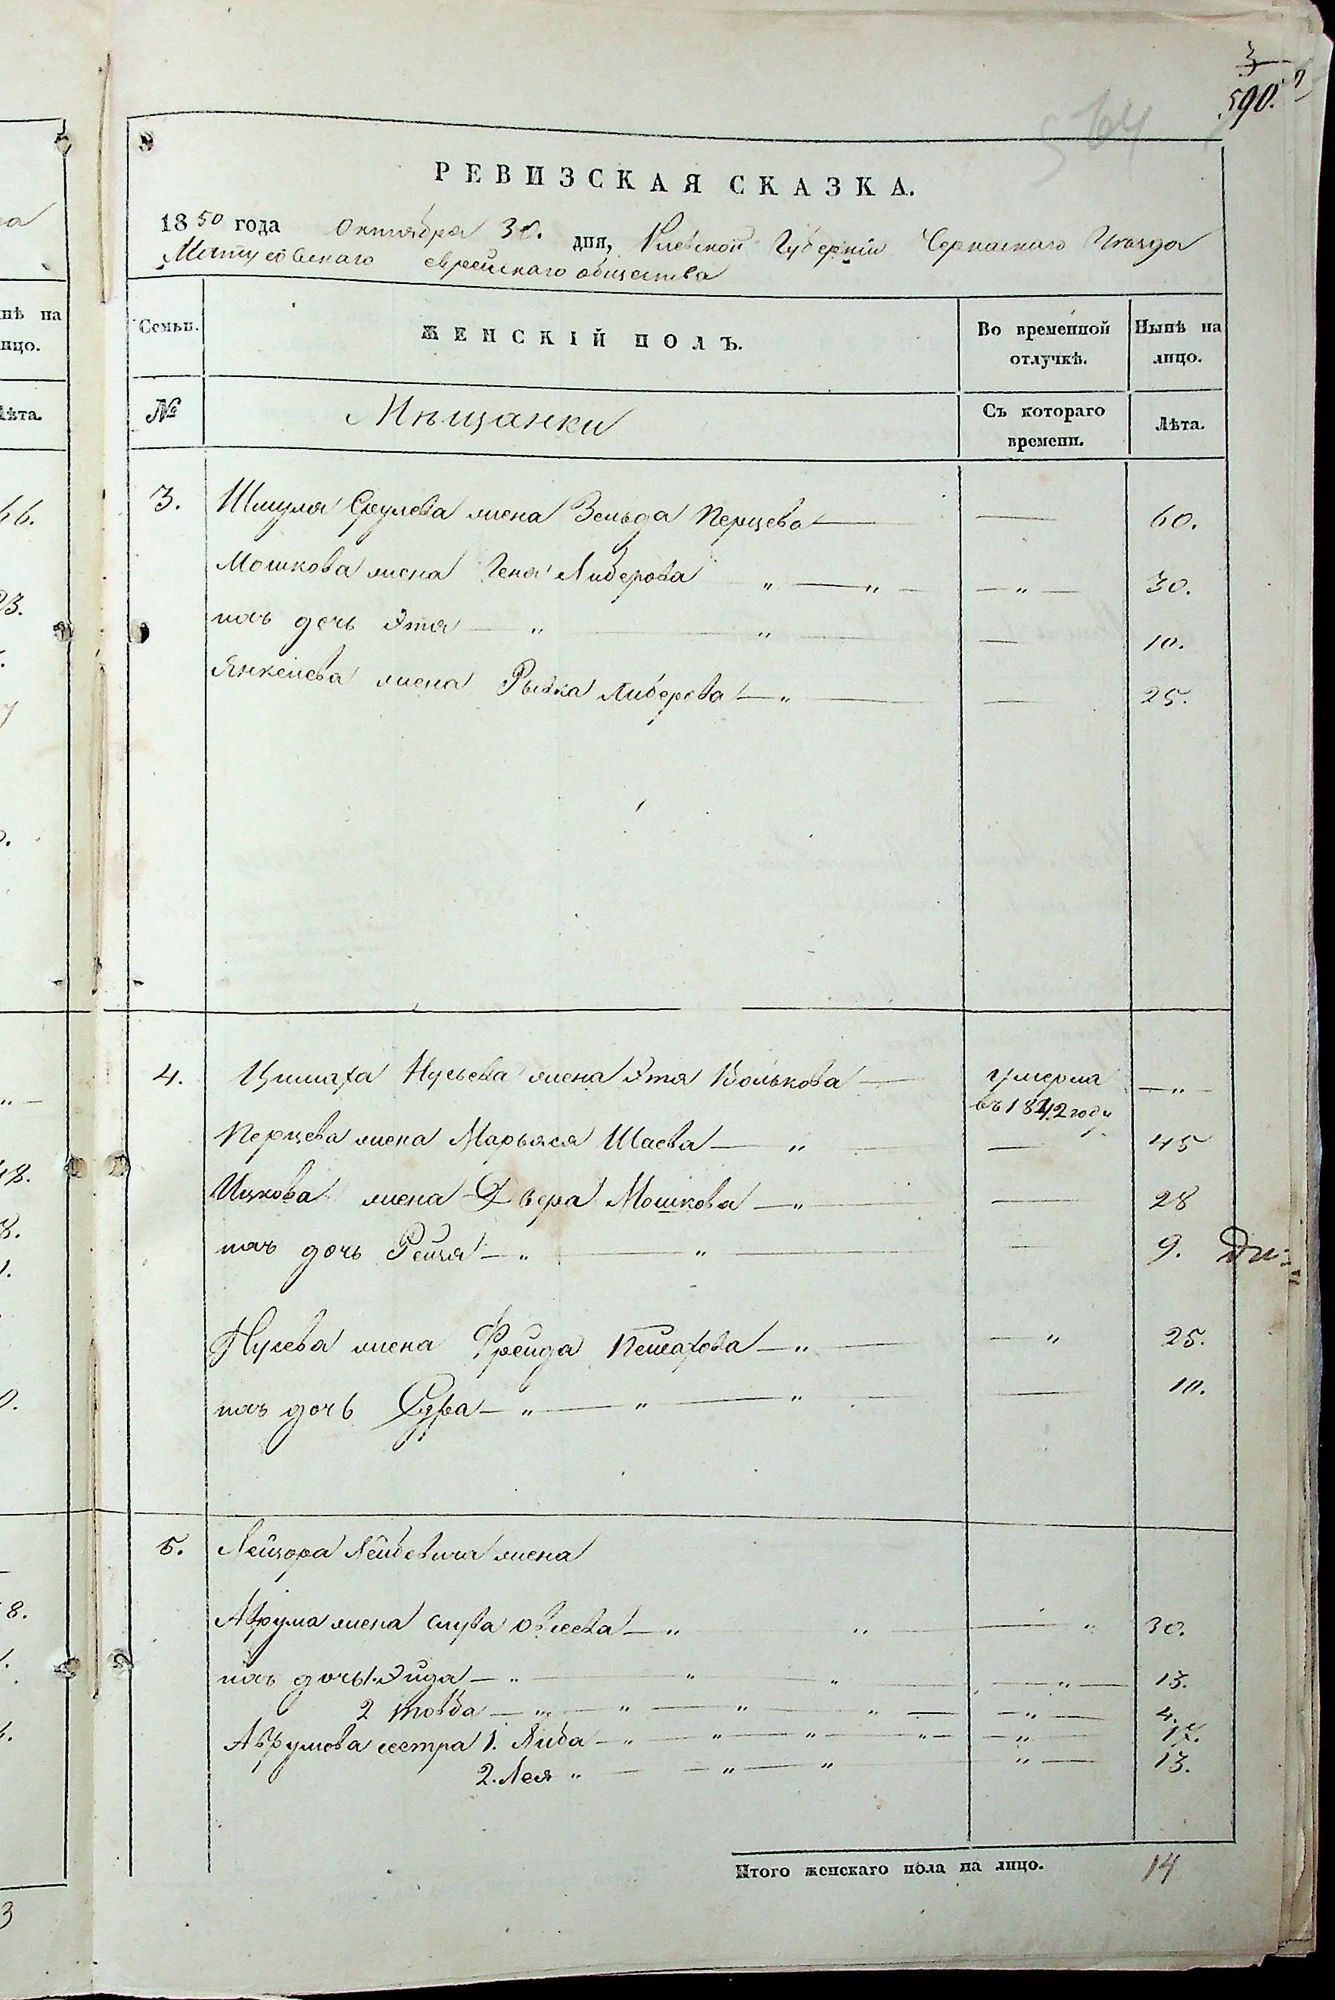 3
590.
564
РЕВИЗСКАЯ СКАЗКА.
1850 года Октября 30. дня, Киевской Губерніи Черкаскаго Уезда
Матусовскаго еврейскаго общества
Семьи. ЖЕНСКІЙ ПОЛЪ. Во временной отлучкѣ. Нынѣ на лицо.
№ Мѣщанки Съ котораго времени. Лѣта.
3. Шмуля Срулева жена Зельда Перцева — — 60.
Мошкова жена Геня Либерова „ — „ — — „ — 30.
ихъ дочь Этя — „ — „ — — 10.
Янкелева жена Рывка Либерова — „ — — 25.
4. Цимаха Нусьева жена Этя Волькова — умерла въ 1842 году — „ —
Перцева жена Марьяся Шаева — „ — — 45
Ицкова жена Двера Мошкова — „ — — 28
ихъ дочь Рейзя — „ — „ — — 9.
Нусева жена Фрейда Пейсахова — „ — — „ 25.
ихъ дочь Сура — „ — „ — „ — — 10.
5. Лейзора Лейбовича жена
Аврума жена Слува Овсеева — „ „ — — „ 30.
ихъ дочь 1. Эйда — „ — „ — „ — — „ — 13.
2 Товба — „ — „ — „ — „ — — „ — 4.
Аврумова сестра 1. Либа — „ — „ — „ — „ — — „ — 17.
2. Лея „ — — „ — „ — „ — 13.
Итого женскаго пола на лицо. 14